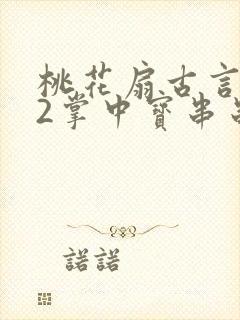 桃花扇古言
2掌中寶串
諾諾